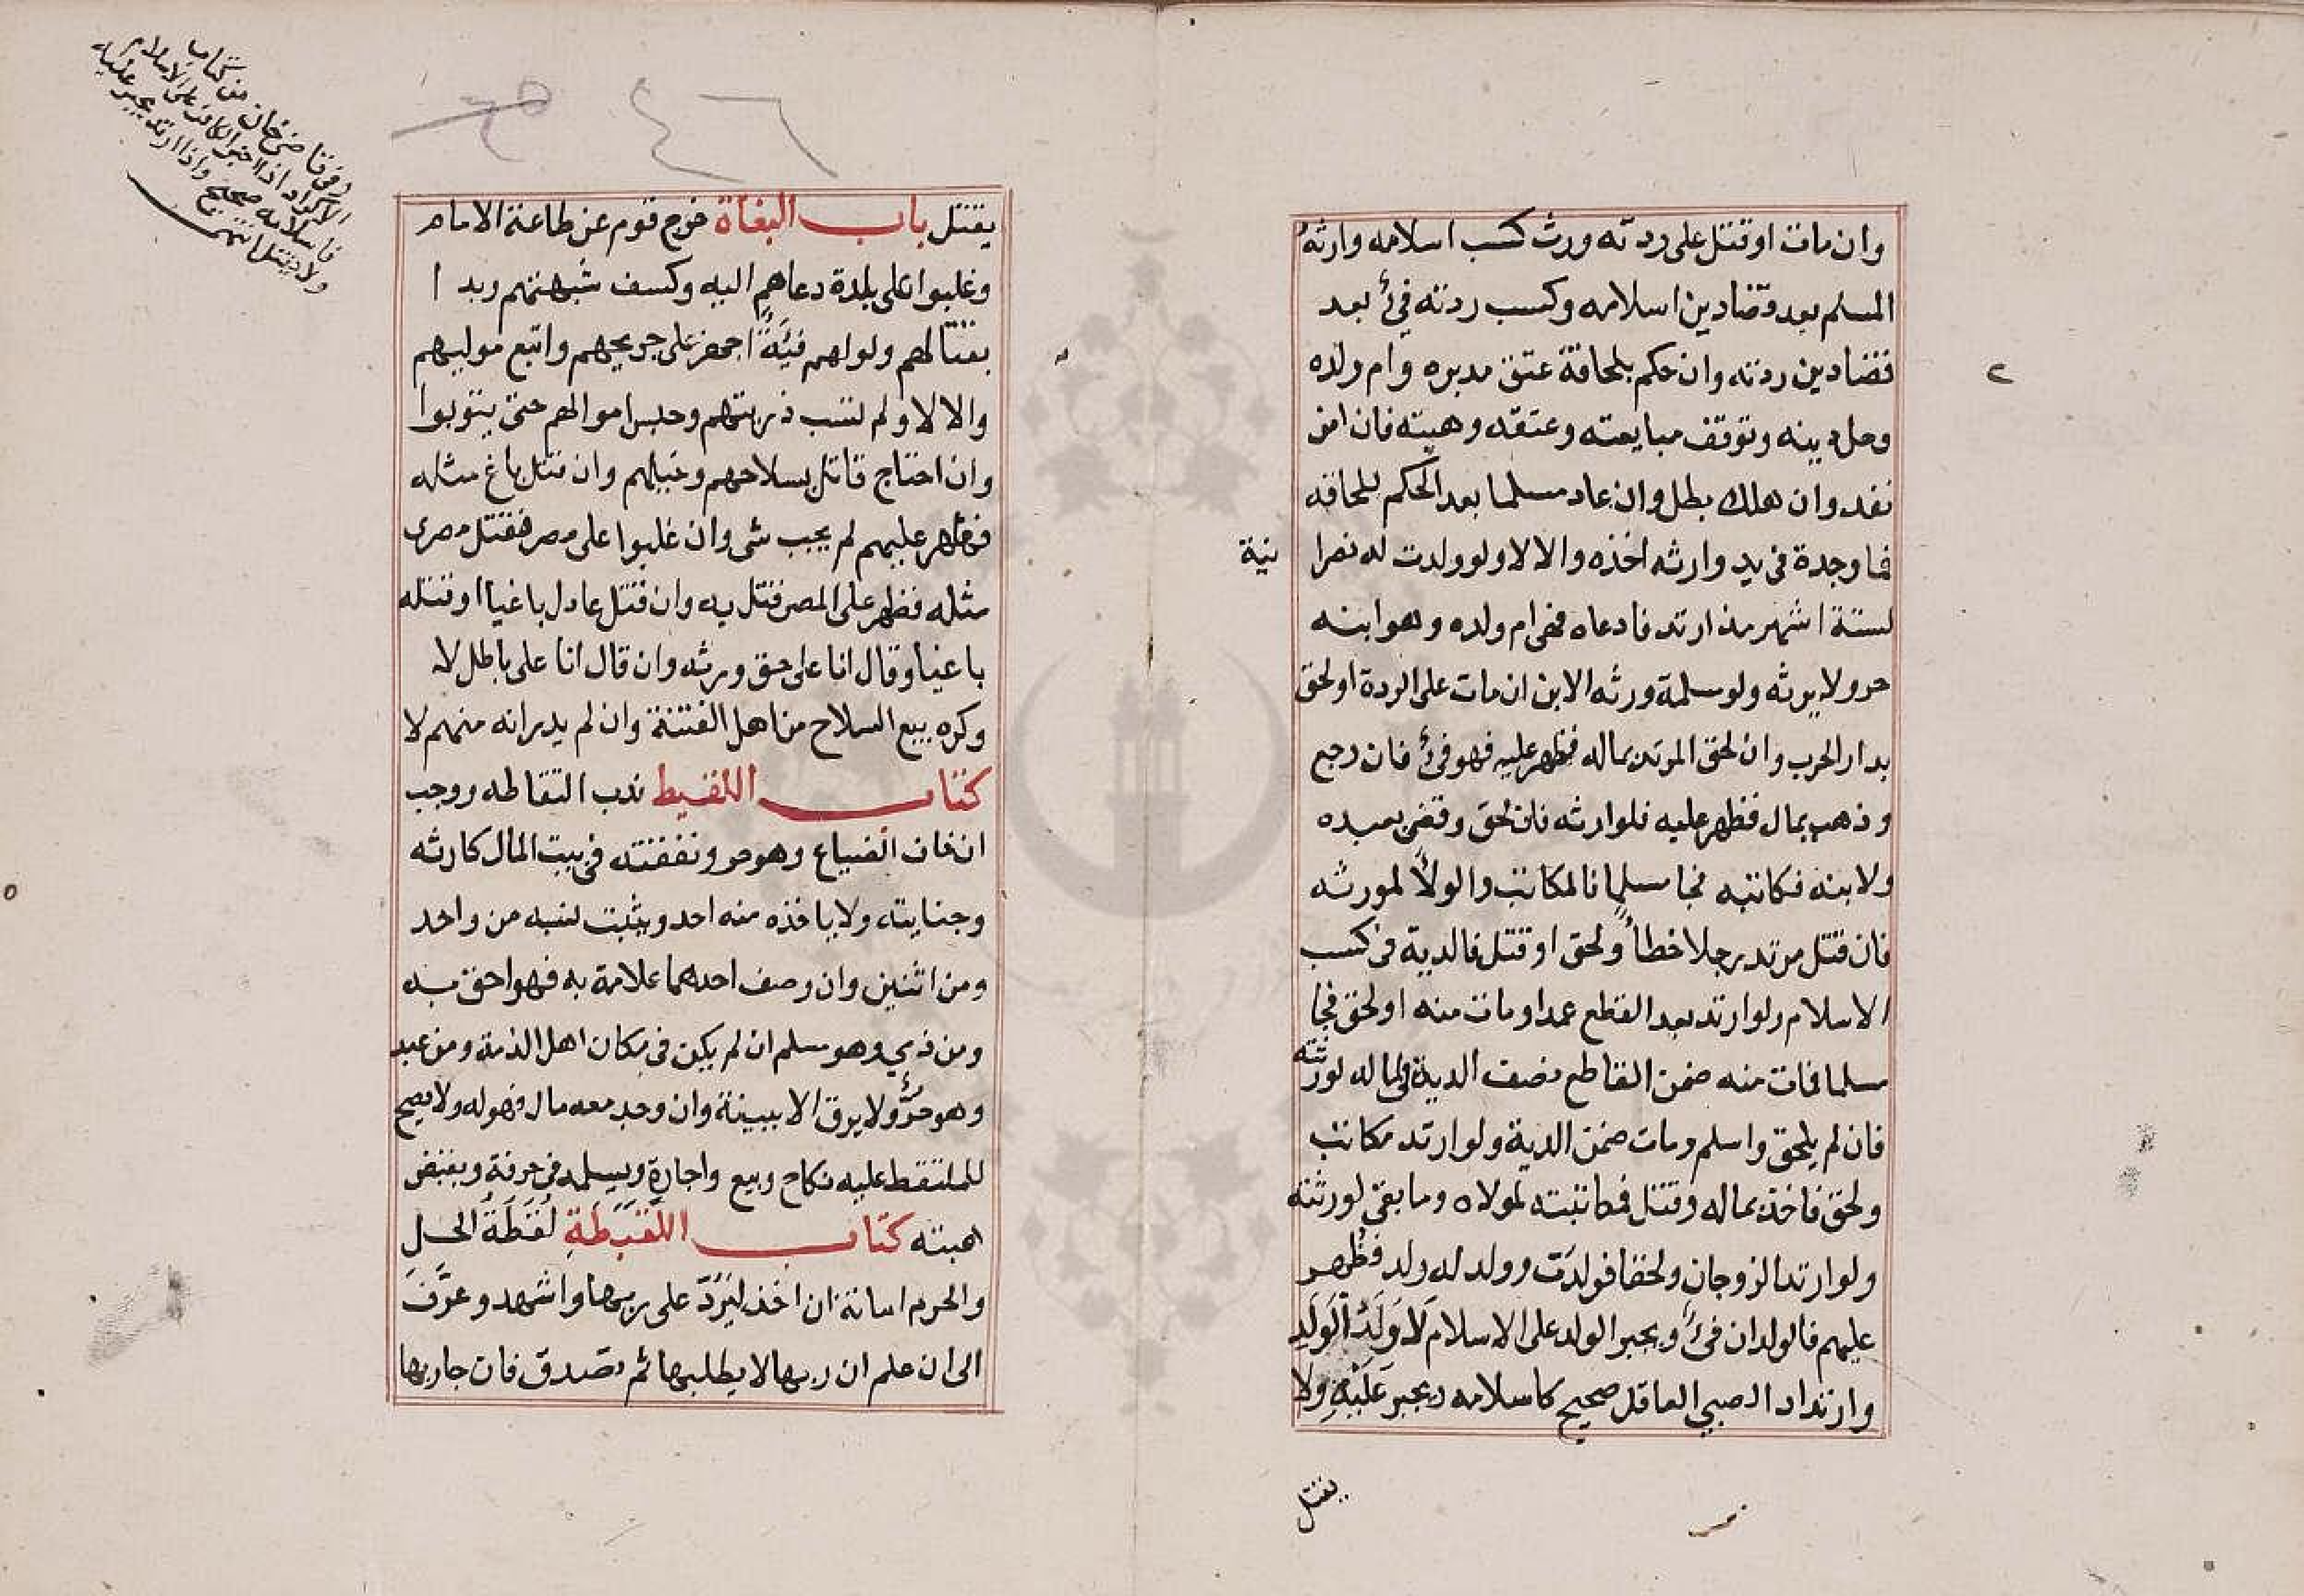 وان مات او قتل على ردته ورث كسب اسلامه وارثه
المسلم بعد قضا دين اسلامه وكسب ردته فئ بعد
قضا دين ردته وان حكم بلحاقة عتق مدبره وام ولده
وحل دينه وتوقف مبايعته وعتقه وهبته فان امن
نفد وان هلك بطل وان عاد مسلما بعد الحكم بلحاقه
فما وجدة في يد وارثه اخذه والا لا ولو ولدت له نصرا نية
لستة اشهر مذ ارتد فادعاه فهى ام ولده وهو ابنه
حر ولا يرثه ولو مسلمة ورثه الابن ان مات على الردة او لحق
بدار الحرب وان لحق المرتد بماله فظهر عليه فهو فئ فان رجع
وذهب بمال فظهر عليه فلوارثه فان لحق وقضى بعبده
ولابنه فكاتبه فجا مسلما فالمكاتب والولأ لمورثه
فان قتل مرتد رجلا خطأ ولحق او قتل فالدية في كسب
الاسلام ولو ارتد بعد القطع عمدا ومات منه او لحق فجا
مسلما فمات منه ضمن القاطع نصف الدية في ماله لورثته
فان لم يلحق واسلم ومات ضمن الدية ولو ارتد مكاتب
ولحق فاخذ بماله وقتل فمكاتبته لمولاه وما بقى لورثته
ولو ارتد الزوجان ولحقا فولدت وولد له ولد فظهر
عليهم فالولدان فئ ويجبر الولد على الاسلام لا ولد الولد
وارتداد الصبي العاقل صحيح كاسلامه ويجبر عليه ولا
يقتل
٤٦
وفي قاضى خان من كتاب
الاكراه اذا اجبر الكافر على الاسلام
فاسلامه صحيح واذا ارتد يجبر عليه
ولا يقتل انتهى
يقتل باب البغاة خرج قوم عن طاعة الامام
وغلبوا على بلدة دعاهم اليه وكسف شبهتهم وبدا
بقتالهم ولو لهم فئة اجهز على جريحهم واتبع موليهم
والا لا ولم تسب ذريتهم وحبس اموالهم حتى يتوبوا
وان احتاج قاتل بسلاحهم وخيلهم وان قتل باغ مثله
فظهر عليهم لم يجب شى وان غلبوا على مصر فقتل مصرى
مثله فظهر على المصر قتل به وان قتل عادل باغيا او قتله
باغيا وقال انا على حق ورثه وان قال انا على باطل لا
وكره بيع السلاح من اهل الفتنة وان لم يدر انه منهم لا
كتاب اللقيط ندب التقاطه ووجب
ان خاف الضياع وهو حر ونفقته في بيت المال كارثه
وجنايته ولا ياخذه منه احد ويثبت نسبه من واحد
ومن اثنين وان وصف احدهما علامة به فهو احق به
ومن ذمي وهو مسلم ان لم يكن في مكان اهل الذمة ومن عبد
وهو حر ولا يرق الا ببينة وان وجد معه مال فهو له ولا يصح
للملتقط عليه نكاح وبيع واجارة ويسلمه في حرفة ويقبض
هبته كتاب اللقطة لقطة الحل
والحرم امانة ان اخذ ليرد على ربها واشهد وعرف
الى ان علم ان ربها لا يطلبها ثم تصدق فان جا ربها